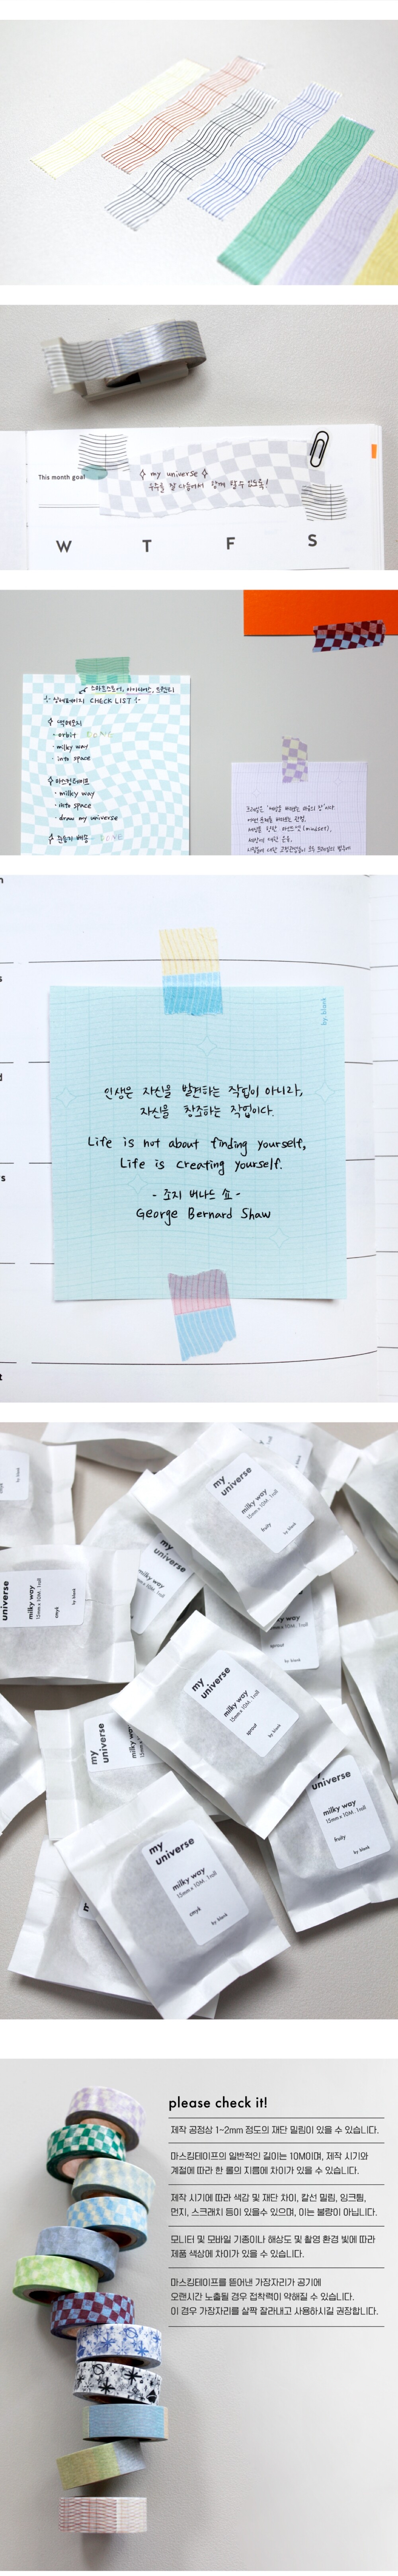 This month goal
✧ my universe ✧
우주를 잘 다듬어서 함께 할 수 있도록!
W
T
F
S
스마트스토어, 아이디어스, 트렌디
CHECK LIST
✧ 떡메모지
- orbit DONE
- milky way
- into space
✧ 마스킹테이프
- milky way
- into space
- draw my universe
DONE
by. blank
인생은 자신을 발견하는 작업이 아니라,
자신을 창조하는 작업이다.
Life is not about finding yourself,
Life is creating yourself.
- 조지 버나드 쇼 -
George Bernard Shaw
my
universe
milky way
15mm x 10M. 1roll
fruity
by. blank
my
universe
milky way
universe
milky way
15mm x 10M. 1roll
cmyk
by. blank
sprout
my
universe
milky way
15mm x 10M. 1roll
sprout
by. blank
my
universe
universe
milky way
15mm x 10M. 1roll
fruity
by. blank
my
universe
milky way
15mm x 10M. 1roll
cmyk
by. blank
please check it!
제작 공정상 1~2mm 정도의 재단 밀림이 있을 수 있습니다.
마스킹테이프의 일반적인 길이는 10M이며, 제작 시기와
계절에 따라 한 롤의 지름에 차이가 있을 수 있습니다.
제작 시기에 따라 색감 및 재단 차이, 칼선 밀림, 잉크튐,
먼지, 스크래치 등이 있을수 있으며, 이는 불량이 아닙니다.
모니터 및 모바일 기종이나 해상도 및 촬영 환경 빛에 따라
제품 색상에 차이가 있을 수 있습니다.
마스킹테이프를 뜯어낸 가장자리가 공기에
오랜시간 노출될 경우 접착력이 약해질 수 있습니다.
이 경우 가장자리를 살짝 잘라내고 사용하시길 권장합니다.